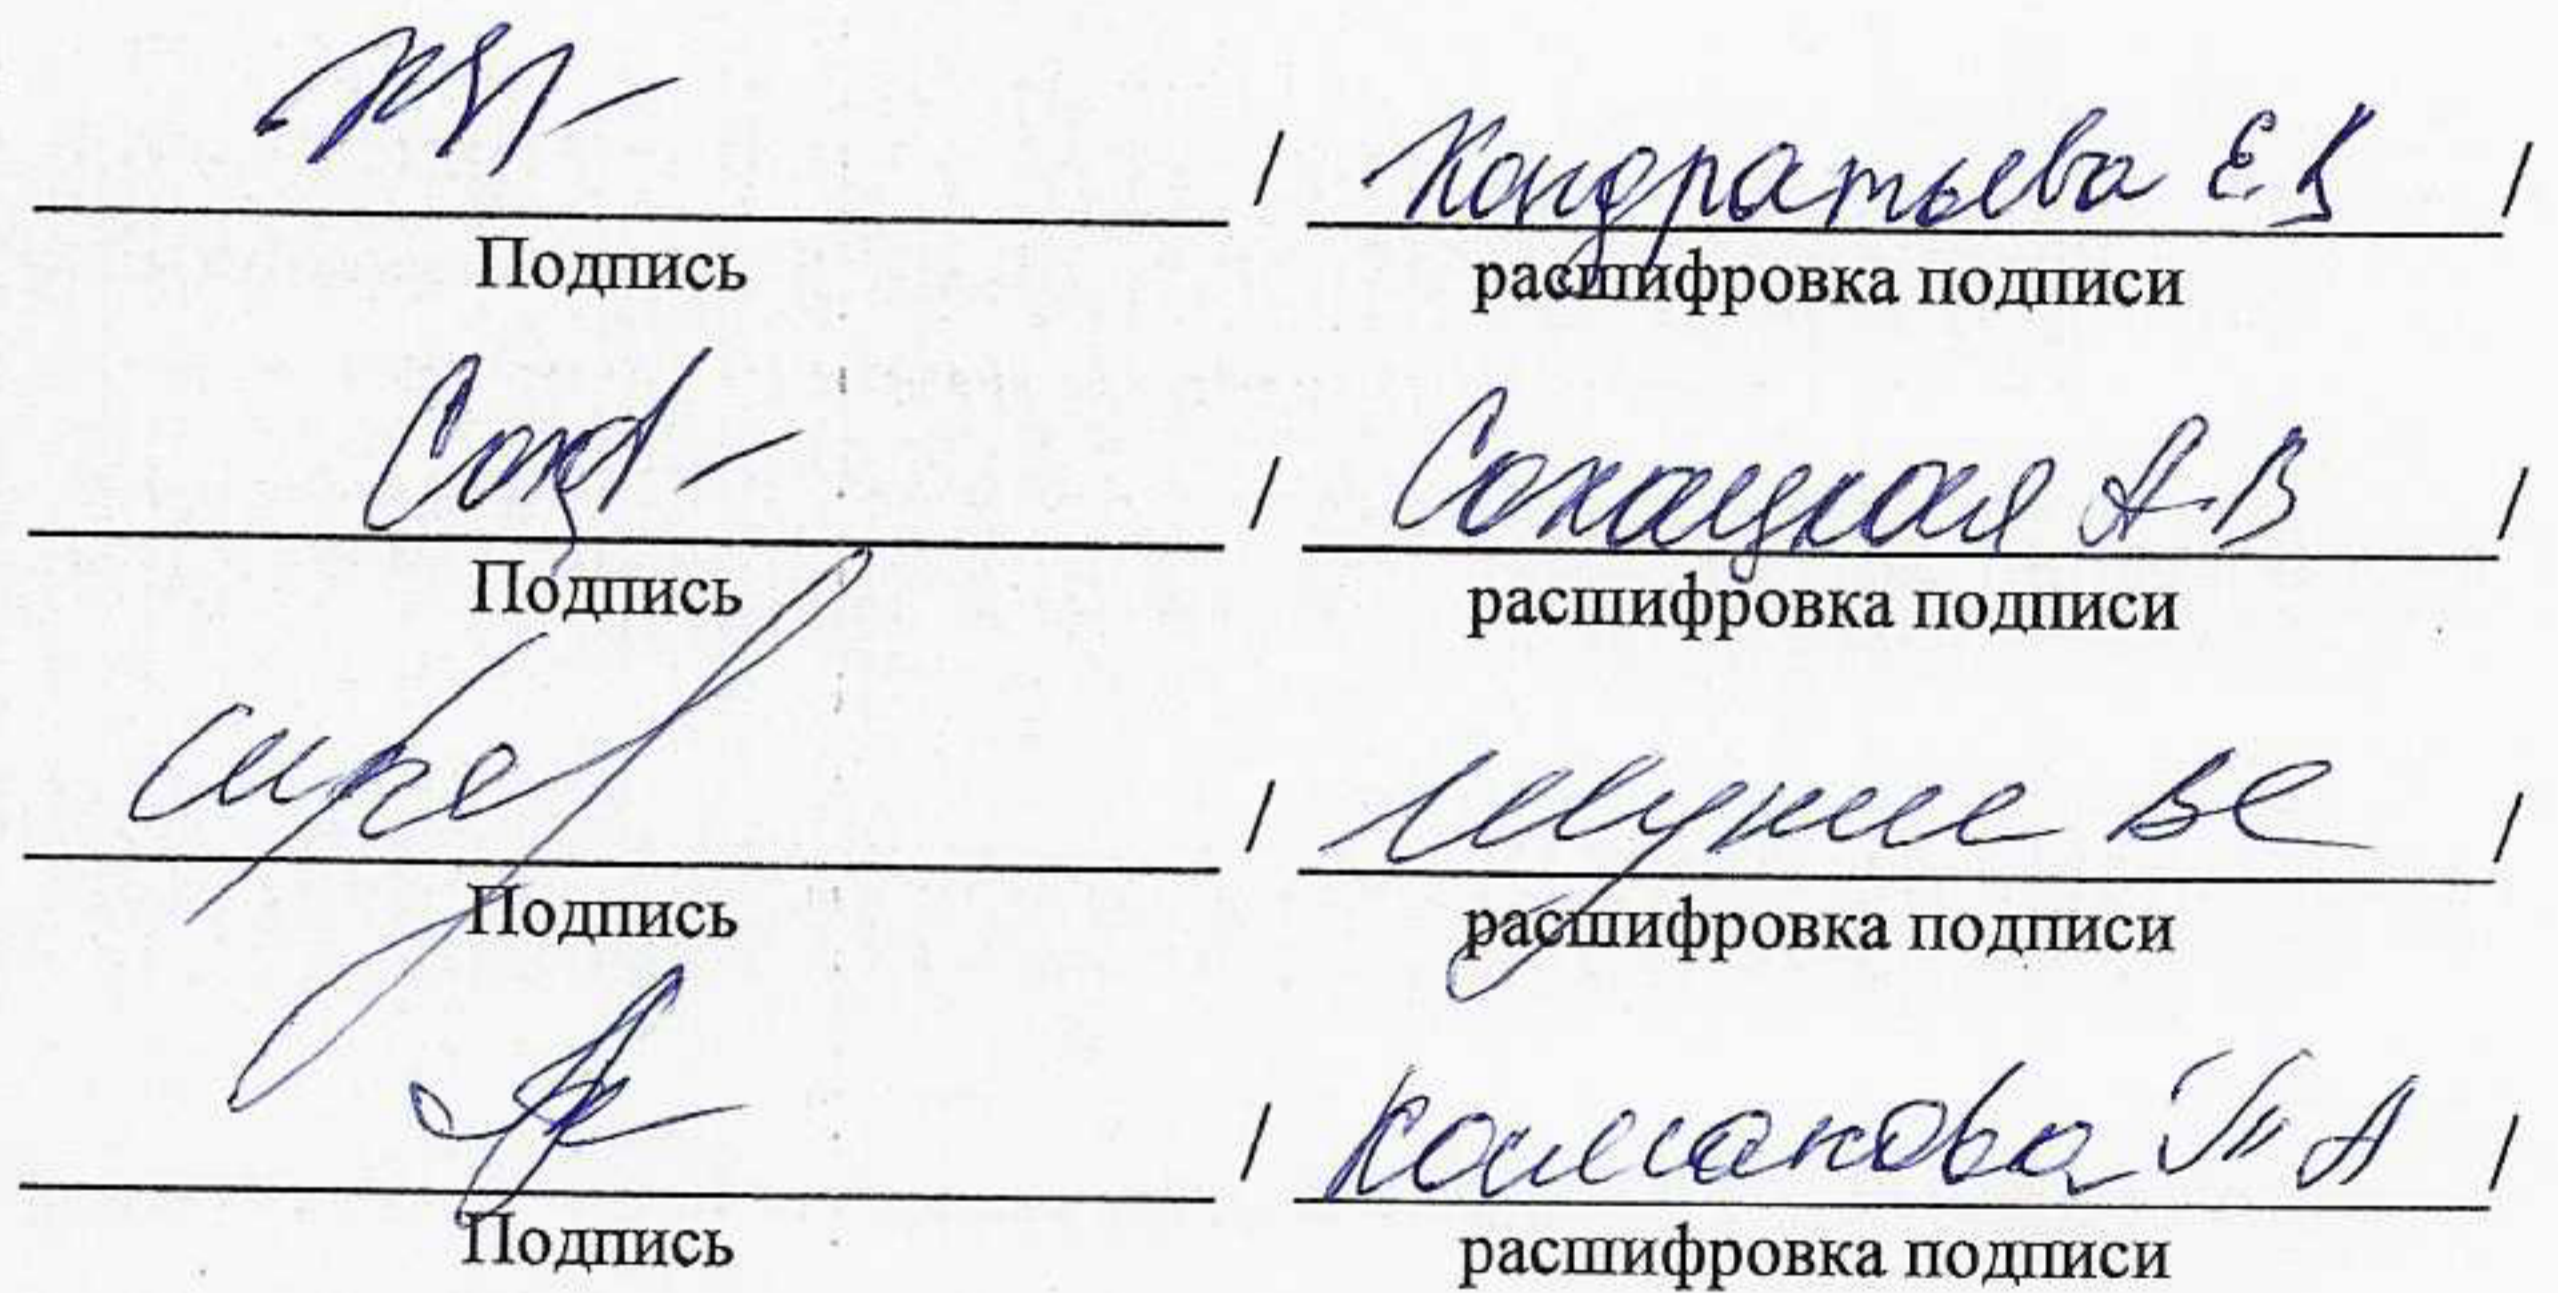 / Кондратьева Е.В /
Подпись расшифровка подписи
/ Сохацкая А.В /
Подпись расшифровка подписи
/ /
Подпись расшифровка подписи
/ Колмакова Т А /
Подпись расшифровка подписи